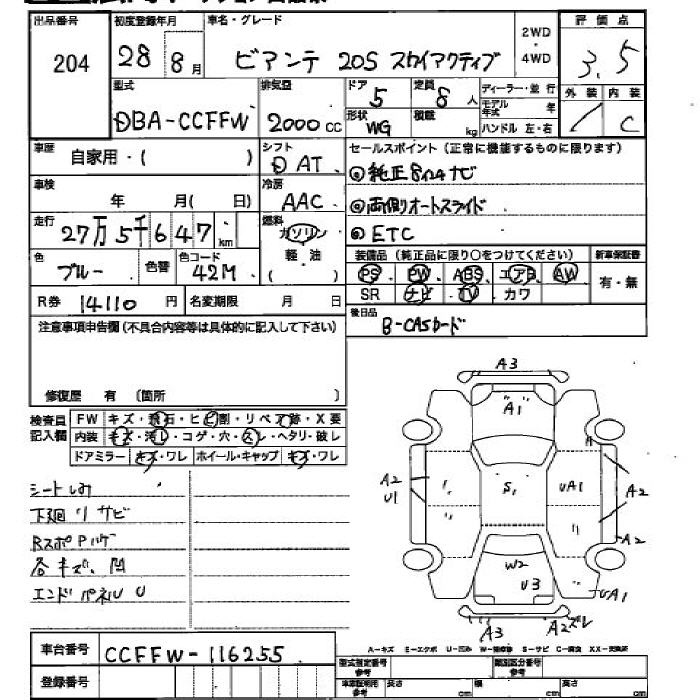 出品番号
204
初度登録年月
28 8月
車名・グレード
ビアンテ 20S スカイアクティブ
2WD
・
4WD
評価点
3.5
外装 内装
/ C
型式
DBA-CCFFW
排気量
2000 cc
ドア
5
定員
8人
形状
WG
積載
kg
ディーラー・並行
モデル年式 年
ハンドル 左・右
車歴
自家用・( )
シフト
D AT
セールスポイント (正常に機能するものに限ります)
◎純正8インチナビ
◎両側オートスライド
◎ETC
車検
年 月( 日)
冷房
AAC
走行
27万5千647km
燃料
ガソリン
軽・油
( )
色
ブルー
色替
色コード
42M
装備品 (純正品に限り○をつけてください)
新車保証書
PS・PW・ABS・エアB・AW
SR ナビ・TV カワ
有・無
R券 14110円
名変期限 月 日
後日品
B-CASカード
注意事項申告欄(不具合内容等は具体的に記入して下さい)
修復歴 有 (箇所 )
検査員
記入欄
FW キズ・飛石・ヒビ割・リペア跡・X要
内装 キズ・汚レ・コゲ・穴・スレ・ヘタリ・破レ
ドアミラー キズ・ワレ ホイール・キャップ キズ・ワレ
シートしみ
下廻りサビ
RスポPハゲ
各キズ、凹
エンドパネルU
A3
A1
A2
U1
S1
UA1
A2
A2
W2
U3
UA1
A3
A2ズレ
A-キズ E-エクボ U-凹み W-補修跡 S-サビ C-腐食 XX-交換済
車台番号
CCFFW-116255
登録番号
型式指定番号
参考
類別区分番号
参考
車庫証明用
参考
長さ cm
幅 cm
高さ cm